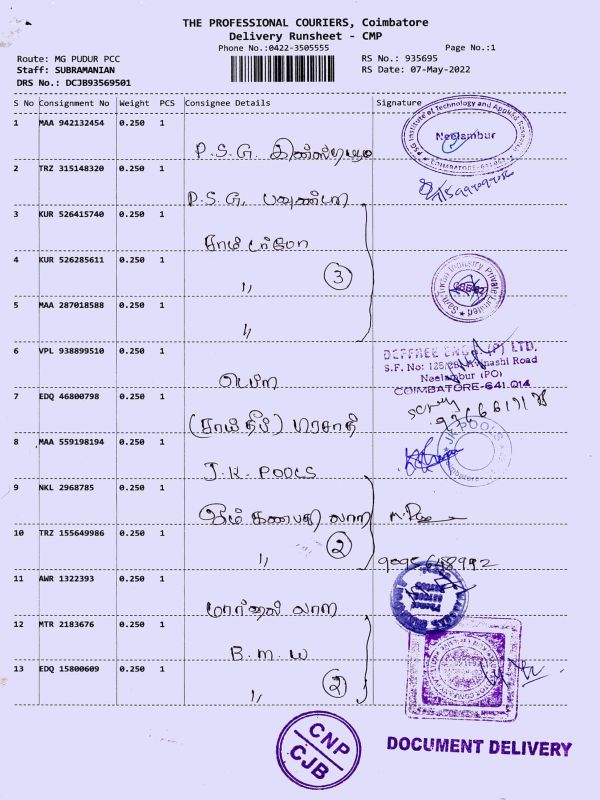 THE PROFESSIONAL COURIERS, Coimbatore
Delivery Runsheet - CMP
Phone No.:0422-3505555
Page No.:1
Route: MG PUDUR PCC
RS No.: 935695
Staff: SUBRAMANIAN
RS Date: 07-May-2022
DRS No.: DCJB93569501
S No Consignment No Weight PCS Consignee Details Signature
1 MAA 942132454 0.250 1
P.S.G.
PSG Institute of Technology and Applied Research
Neelambur
COIMBATORE-641
2 TRZ 315148320 0.250 1
P.S.G.
3 KUR 526415740 0.250 1
சாமி
4 KUR 526285611 0.250 1
,, 3
Industry Private Limited
5 MAA 287018588 0.250 1
,,
6 VPL 938899510 0.250 1
DEFFREE ENGG (P) LTD.
S.F. No: Avinashi Road
Neelambur (PO)
COIMBATORE-641 014
7 EDQ 46800798 0.250 1
8 MAA 559198194 0.250 1
J.K. POOLS
JK POOLS
9 NKL 2968785 0.250 1
ஓம் கணபதி
10 TRZ 155649986 0.250 1
,, 2
9095648992
11 AWR 1322393 0.250 1
12 MTR 2183676 0.250 1
B.M.W
13 EDQ 15800609 0.250 1
,, 2
CNP
CJB
DOCUMENT DELIVERY